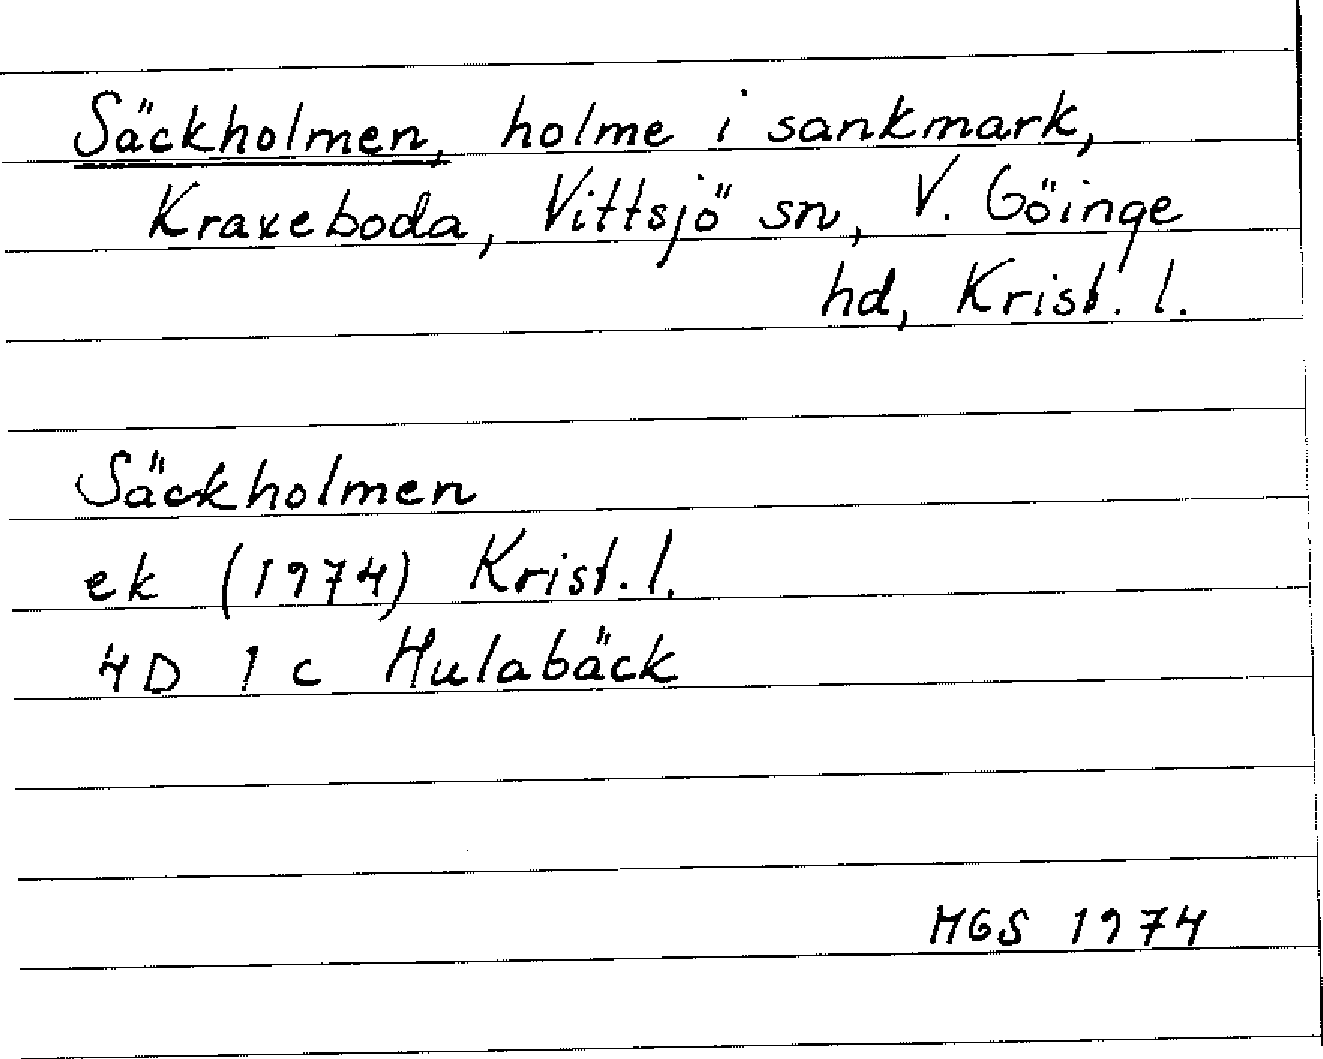 Säckholmen, holme i sankmark,
Kraxeboda, Vittsjö sn, V. Göinge
hd, Krist. l.
Säckholmen
ek (1974) Krist. l.
4D 1 c Hulabäck
MGS 1974